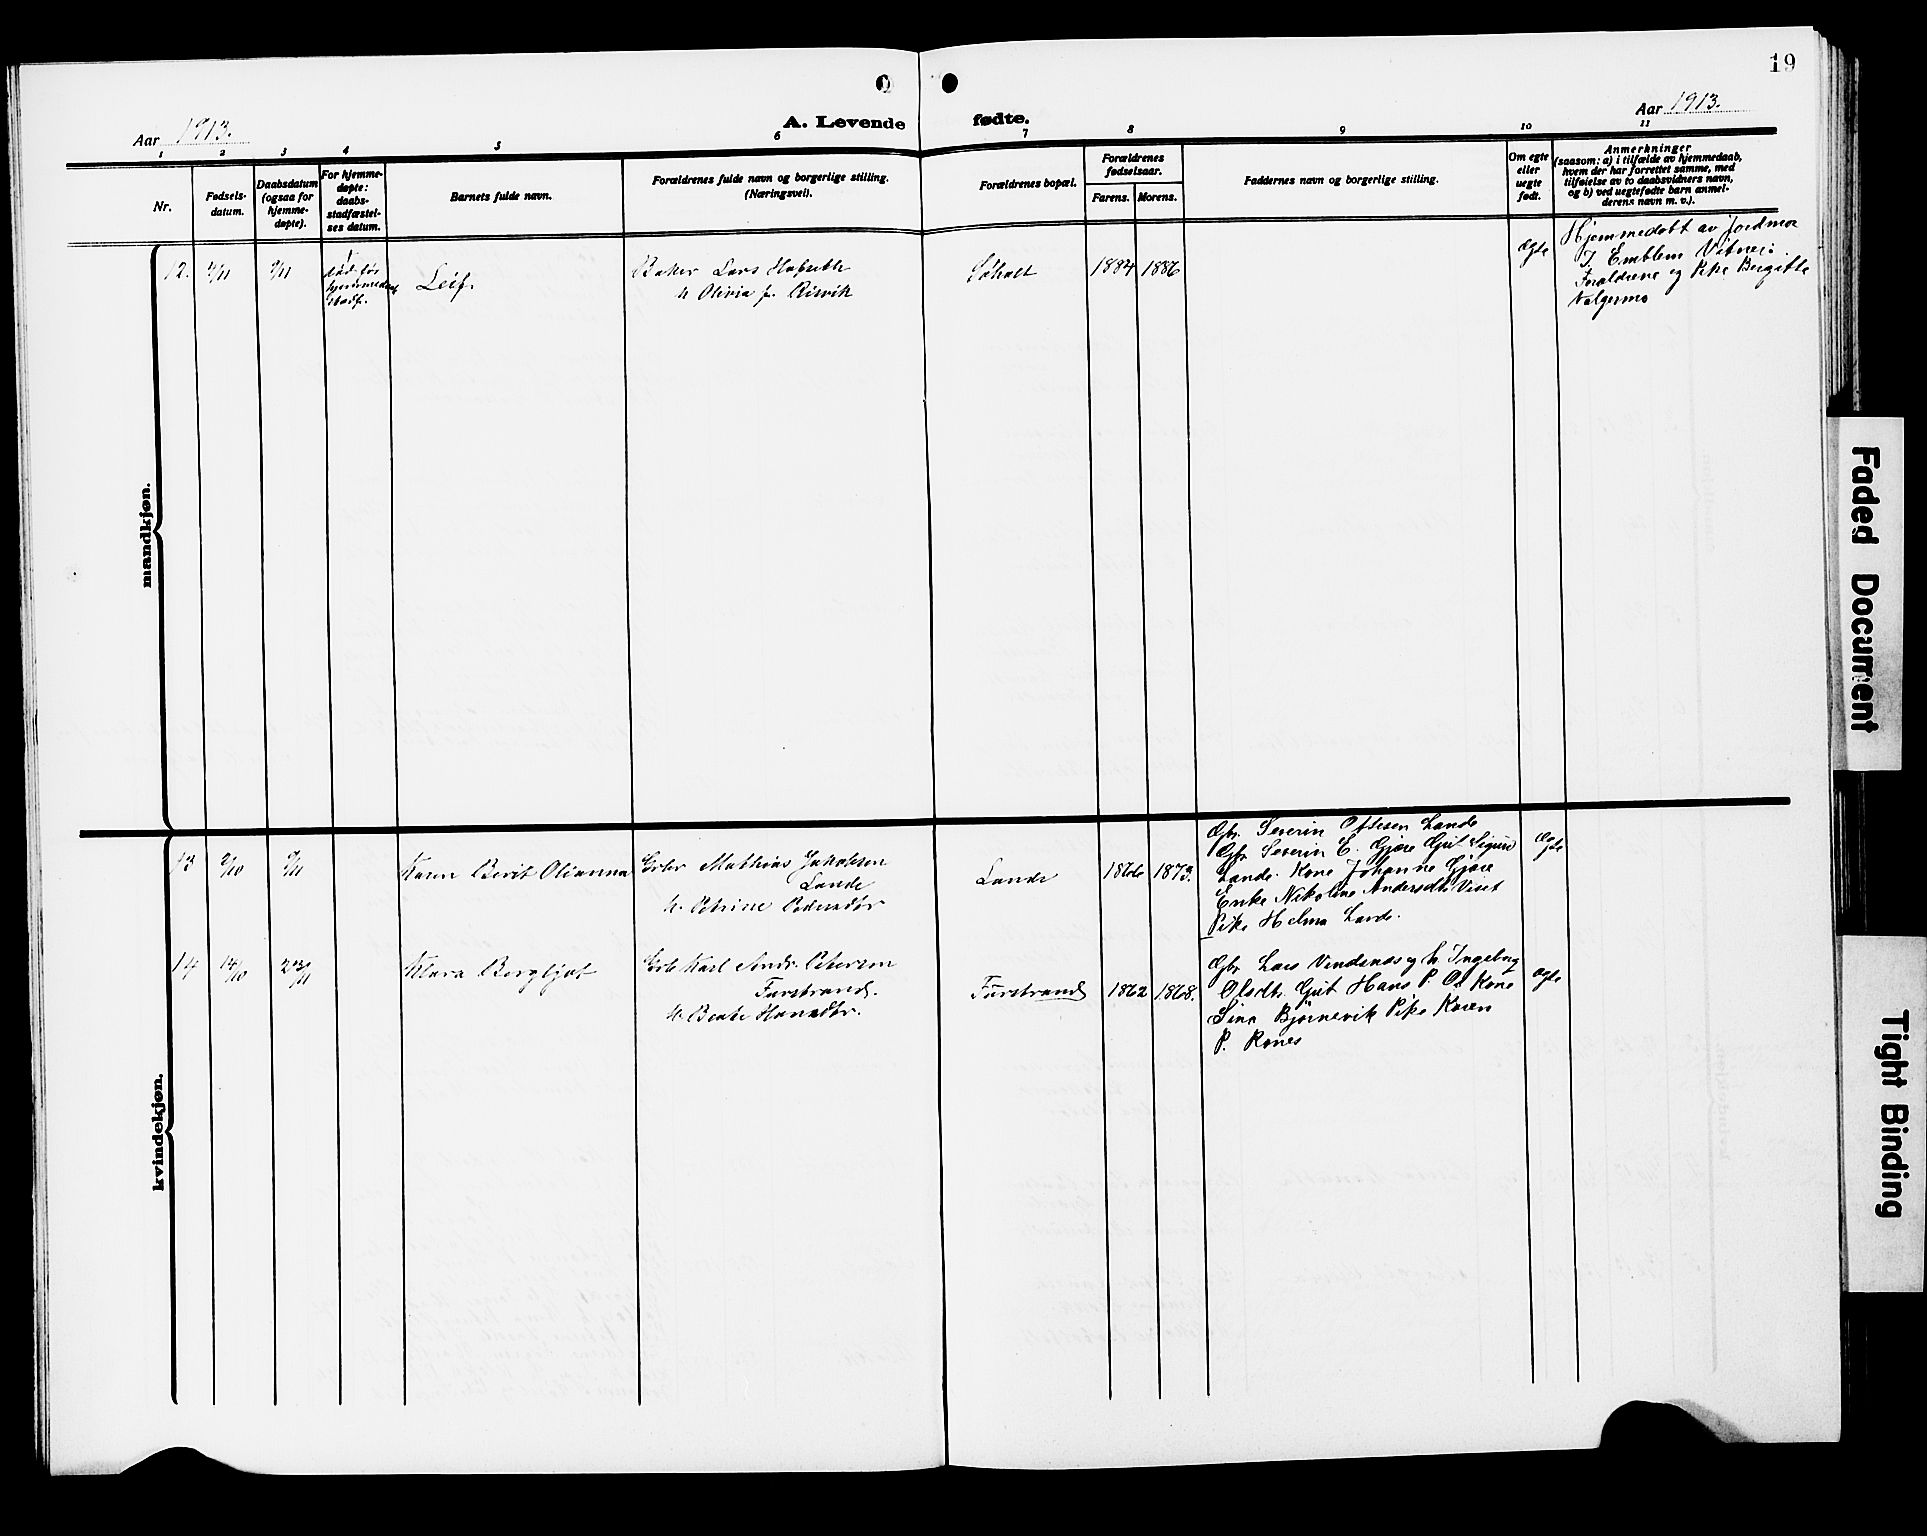 19
Aar 1913.
A. Levende
fødte.
Aar 1913.
1 2 3 4 5 6 7 8 9 10 11
Nr.
Fødsels-
datum.
Daabsdatum
(ogsaa for
hjemme-
døpte).
For hjemme-
døpte:
daabs-
stadfæstel-
ses datum.
Barnets fulde navn.
Forældrenes fulde navn og borgerlige stilling.
(Næringsvei).
Forældrenes bopæl.
Forældrenes
fødselsaar.
Farens. Morens.
Faddernes navn og borgerlige stilling.
Om egte
eller
uegte
født.
Anmerkninger
(saasom: a) i tilfælde av hjemmedaab,
hvem der har forrettet samme, med
tilføielse av to daabsvidners navn,
og b) ved uegtefødte barn anmel-
derens navn m. v.).
mandkjøn.
12.
død før
hjemmedaab
stadf.
Leif.
Baker Lars Hofseth
h. Olivia f. Risvik
Søholt
1884 1886
egte
Hjemmedøbt av Jordmor
J. Emblem Vitner:
Forældrene og Pike Bergitte
Valgermo
kvindekjøn.
13 2/10 9/11
Karen Berit Olianna
Gbr Mathias Jakobsen
Lande
h. Petrine Pedersdtr
Lande
1866 1873.
Gbr. Severin Ottesen Lande
Gbr Severin E. Gjære Gut Sigurd
Lande. Kone Johanne Gjære
Enke Nikoline Andersdtr Viset
Pike Helma Lande.
egte
14 14/10 23/11
Klara Bergljot
Gbr Karl Andr. Petersen
Furstrand.
h. Beate Hansdtr.
Furstrand
1862 1868.
Gbr Lars Vindenes og h. Ingeborg
Olsdtr. Gut Hans P. Kone
Sina Bjørnevik Pike Karen
P. Rønes
egte
Faded Document
Tight Binding